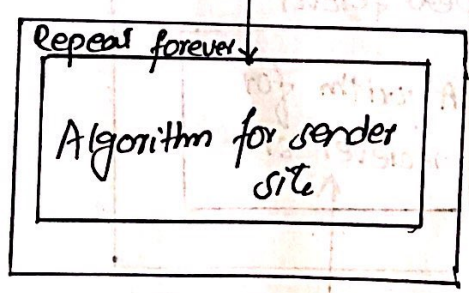 Repeat forever
Algorithm for sender
site